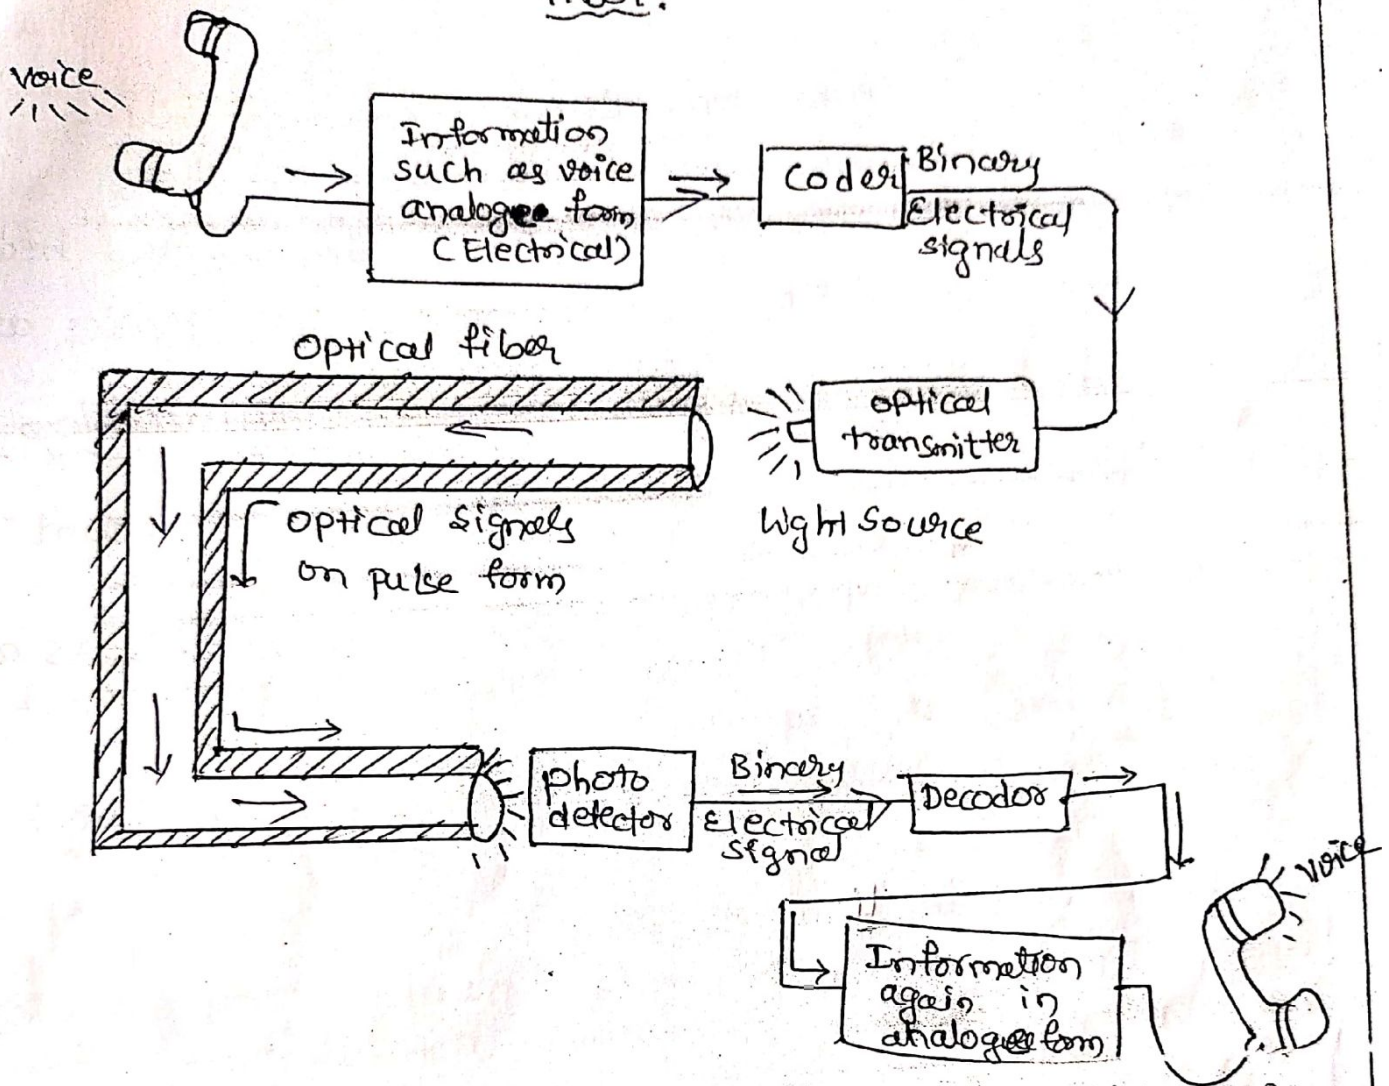 voice
Information
such as voice
analogue form
(Electrical)
Coder
Binary
Electrical
signals
Optical fiber
optical
transmitter
Light Source
Optical Signals
on pulse form
photo
detector
Binary
Electrical
Signal
Decodor
voice
Information
again in
analogue form